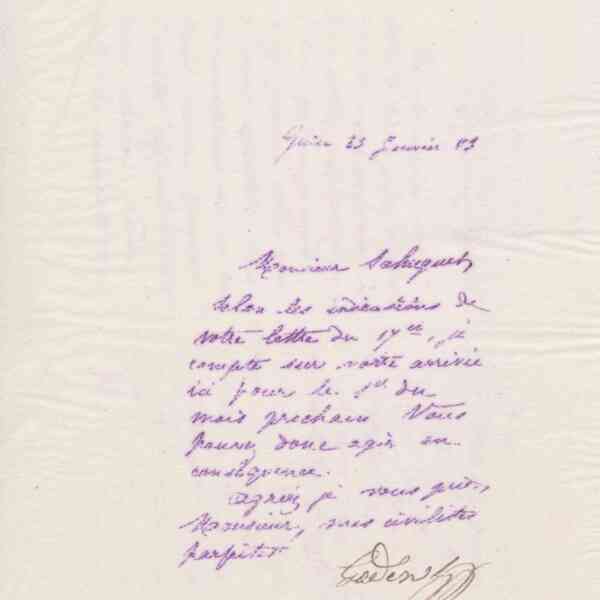 Guise 23 Janvier 83
Monsieur
selon les indications de
votre lettre du 17 ct, je
compte sur votre arrivée
ici pour le 1er du
mois prochain Vous
pouvez donc agir en
conséquence.
Agréez, je vous prie,
Monsieur, mes civilités
parfaites
Godin